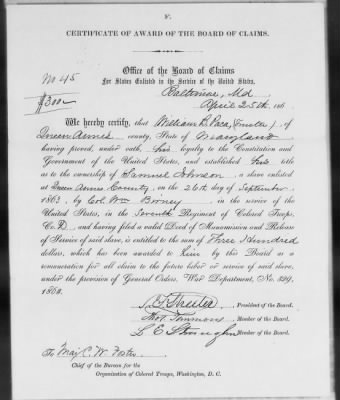 F.
CERTIFICATE OF AWARD OF THE BOARD OF CLAIMS.
Office of the Board of Claims
For Slaves Enlisted in the Service of the United States,
No 45
Baltimore, Md
April 25th, 186
$300
We hereby certify, that William B. Paca, (Trustee) of
Queen Annes county, State of Maryland
having proved, under oath, his loyalty to the Constitution and
Government of the United States, and established his title
as to the ownership of Samuel Johnson, a slave enlisted
at Queen Anne County, on the 26th day of September
1863, by Col. Wm Birney, in the service of the
United States, in the Seventh Regiment of Colored Troops,
Co. D, and having filed a valid Deed of Manumission and Release
of Service of said slave, is entitled to the sum of Three Hundred
dollars, which has been awarded to him by this Board as a
remuneration for all claim to the future labor or service of said slave,
under the provision of General Orders, War Department, No. 329,
1863.
President of the Board.
Thos. Timmons Member of the Board.
L E Straughn Member of the Board.
To Maj C. W. Foster
Chief of the Bureau for the
Organization of Colored Troops, Washington, D. C.